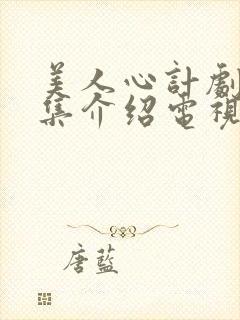 美人心計劇
集介紹電視
唐藍